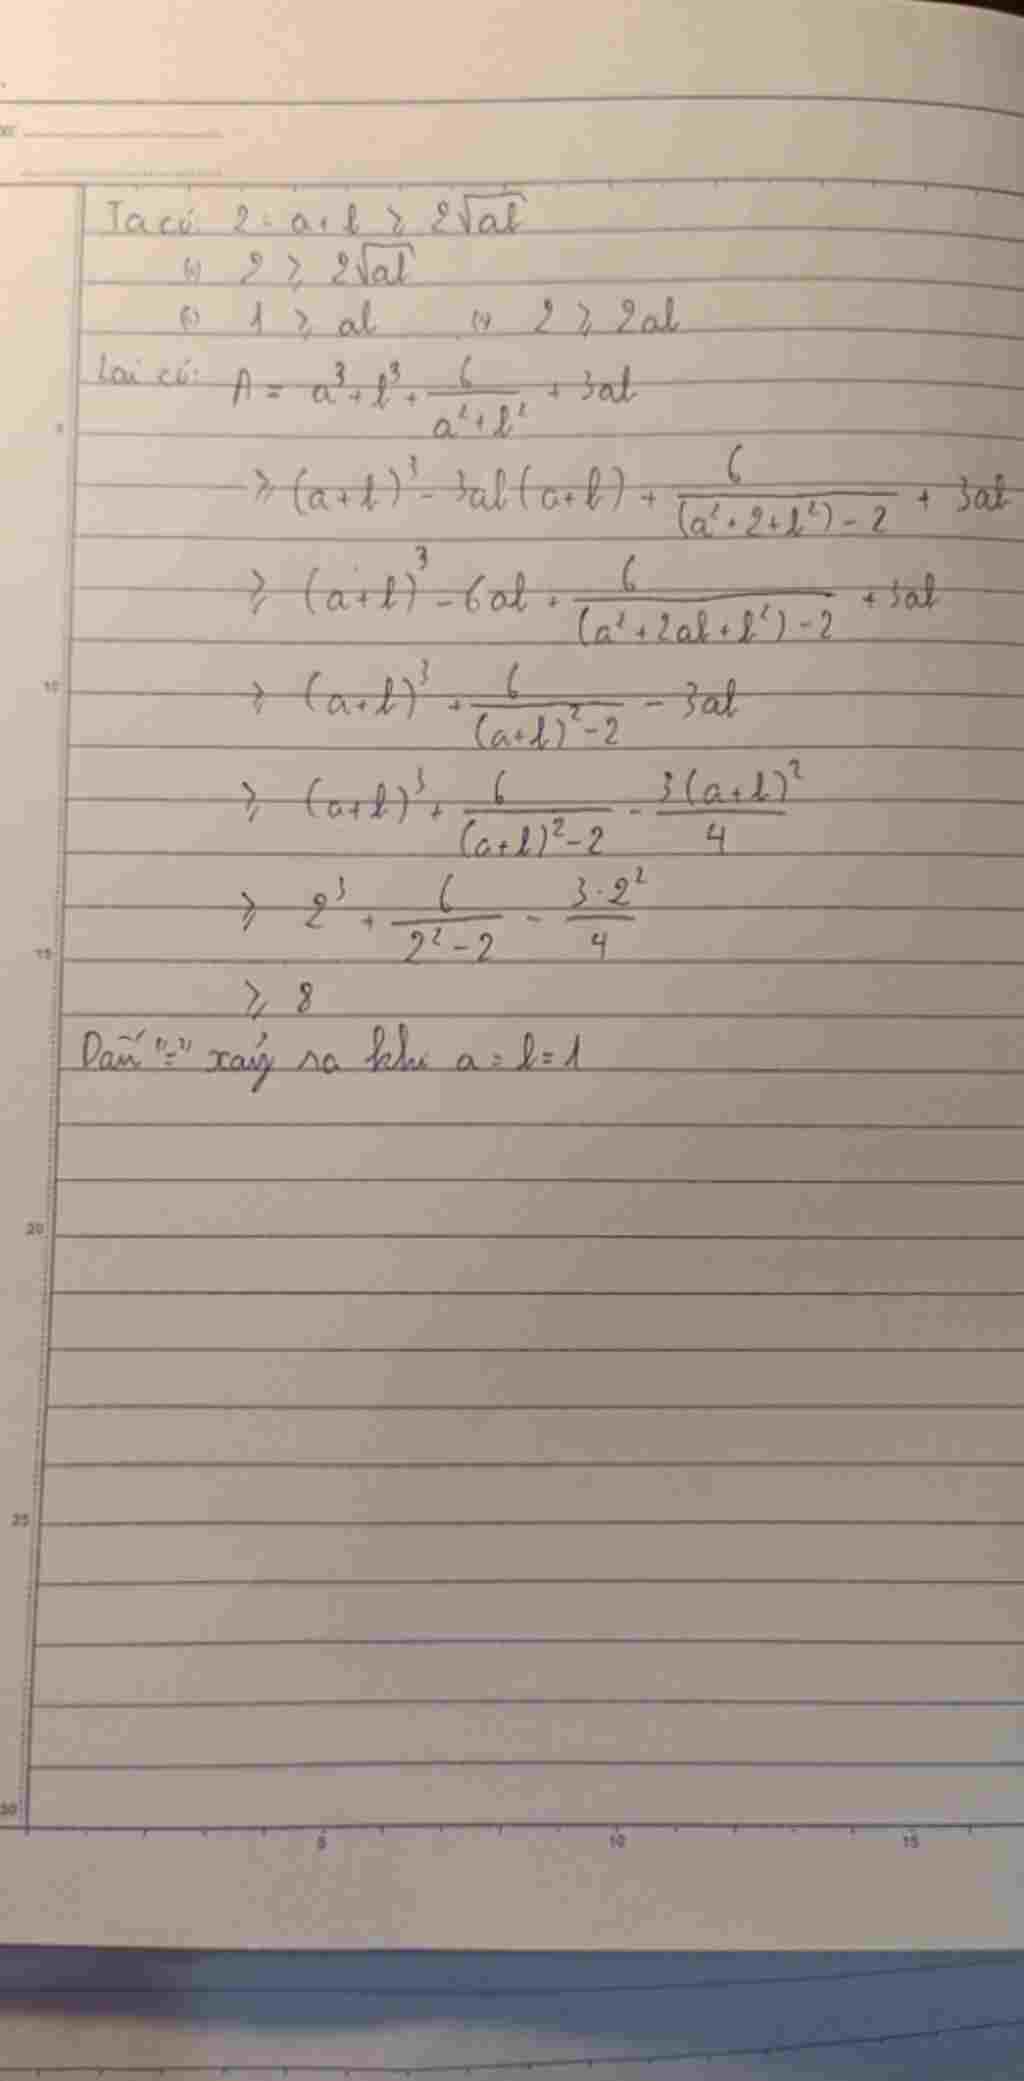 Ta có: 2 = a+b ≥ 2√ab
(=) 2 ≥ 2√ab
(=) 1 ≥ ab (=) 2 ≥ 2ab
Lại có: A = a³ + b³ + 6/(a² + b²) + 3ab
≥ (a+b)³ - 3ab(a+b) + 6/((a² + 2 + b²) - 2) + 3ab
≥ (a+b)³ - 6ab + 6/((a² + 2ab + b²) - 2) + 3ab
≥ (a+b)³ + 6/((a+b)² - 2) - 3ab
≥ (a+b)³ + 6/((a+b)² - 2) - 3(a+b)²/4
≥ 2³ + 6/(2² - 2) - 3·2²/4
≥ 8
Dấu "=" xảy ra khi a = b = 1
5
10
15
20
25
30
5 10 15